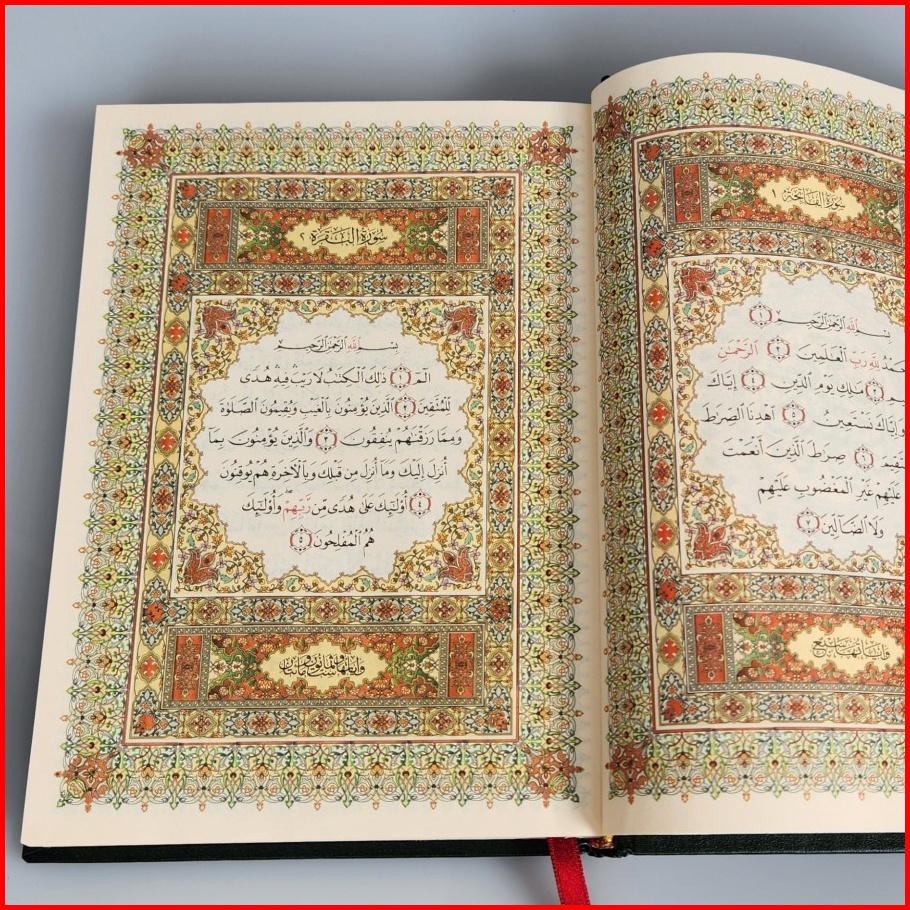 سُورَةُ الْفَاتِحَةِ ١
بِسْمِ اللَّهِ الرَّحْمَٰنِ الرَّحِيمِ ﴿١﴾
حَمْدُ لِلَّهِ رَبِّ الْعَالَمِينَ ﴿٢﴾ الرَّحْمَٰنِ
يمِ ﴿٣﴾ مَالِكِ يَوْمِ الدِّينِ ﴿٤﴾ إِيَّاكَ
وَإِيَّاكَ نَسْتَعِينُ ﴿٥﴾ اهْدِنَا الصِّرَاطَ
تَقِيمَ ﴿٦﴾ صِرَاطَ الَّذِينَ أَنْعَمْتَ
عَلَيْهِمْ غَيْرِ الْمَغْضُوبِ عَلَيْهِمْ
وَلَا الضَّالِّينَ ﴿٧﴾
وَآيَاتُهَا سَبْعٌ
سُورَةُ الْبَقَرَةِ ٢
بِسْمِ اللَّهِ الرَّحْمَٰنِ الرَّحِيمِ
الٓمٓ ﴿١﴾ ذَٰلِكَ الْكِتَٰبُ لَا رَيْبَ ۛ فِيهِ ۛ هُدًى
لِّلْمُتَّقِينَ ﴿٢﴾ الَّذِينَ يُؤْمِنُونَ بِالْغَيْبِ وَيُقِيمُونَ الصَّلَوٰةَ
وَمِمَّا رَزَقْنَٰهُمْ يُنفِقُونَ ﴿٣﴾ وَالَّذِينَ يُؤْمِنُونَ بِمَا
أُنزِلَ إِلَيْكَ وَمَا أُنزِلَ مِن قَبْلِكَ وَبِالْآخِرَةِ هُمْ يُوقِنُونَ
﴿٤﴾ أُولَٰئِكَ عَلَىٰ هُدًى مِّن رَّبِّهِمْ ۖ وَأُولَٰئِكَ
هُمُ الْمُفْلِحُونَ ﴿٥﴾
وَآيَاتُهَا مِائَتَانِ وَسِتٌّ وَثَمَانُونَ